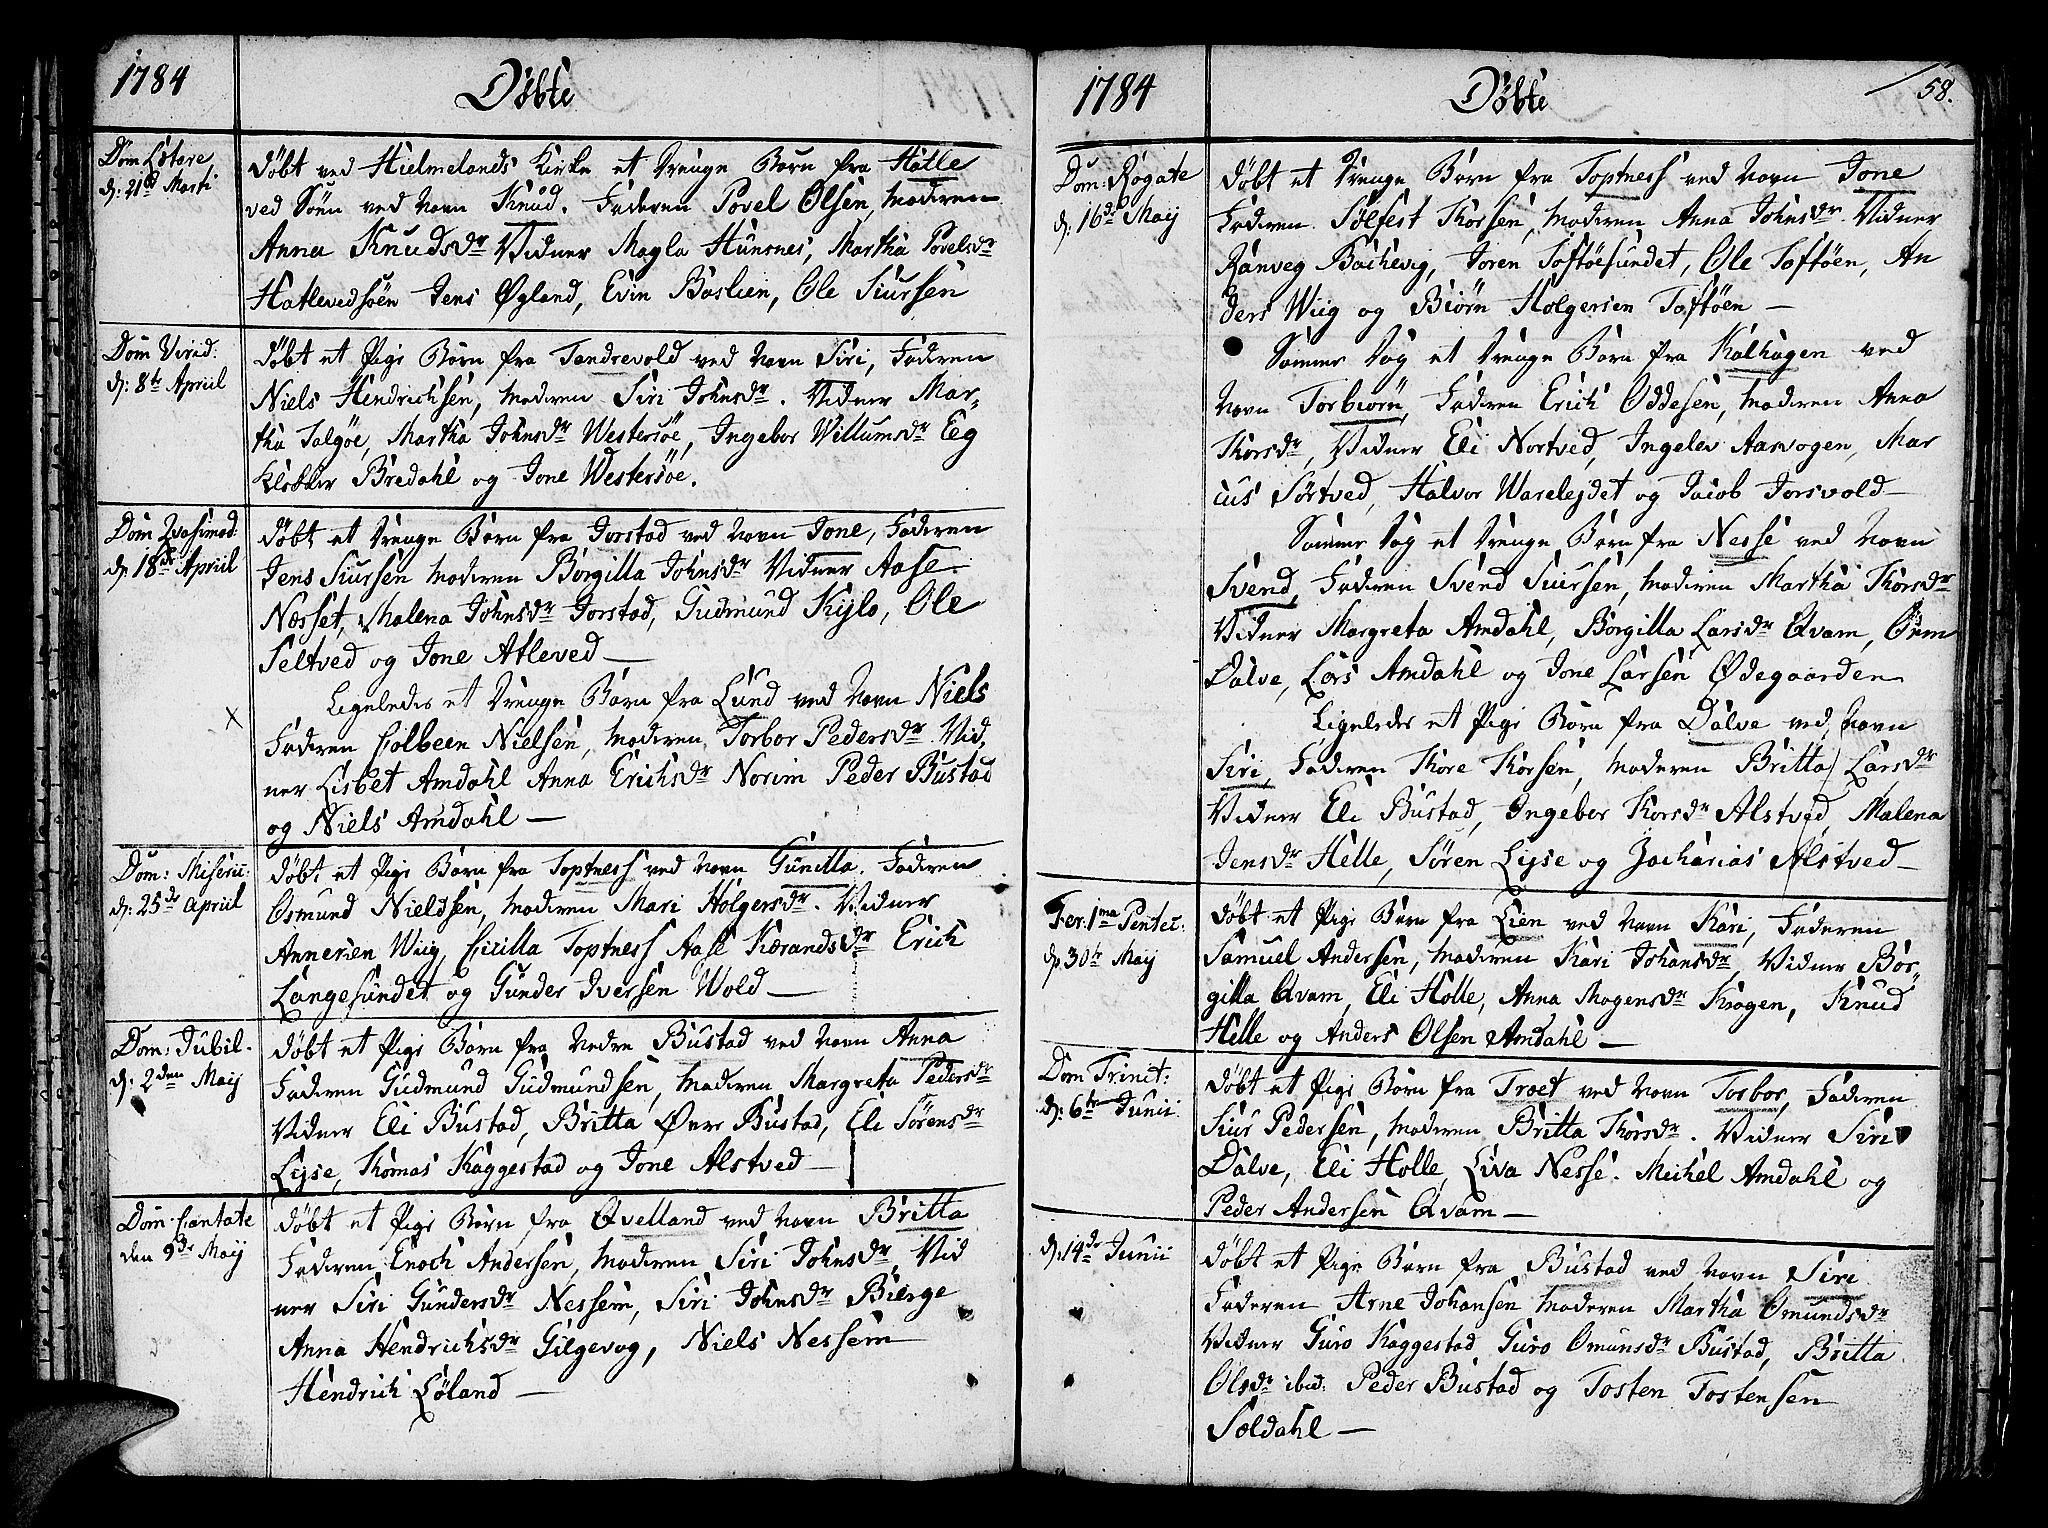 1784
Döbte
Dom Lætare
d: 21de Marti
Döbt ved Hielmelands Kirke et Drenge Barn fra Hatle
ved Söen ved Navn Knud. Faderen Povel Olsen, Moderen
Anna Knudsdr Vidner Magla Hunsnes, Martha Povelsdr
Hatlevedsöen Jens Øgland, Evin Baslien, Ole Siursen
Dom Virid:
d: 8de Apriil
Döbt et Pige Barn fra Tandrevold ved Navn Siri, Faderen
Niels Hendrichsen, Moderen Siri Johnsdr. Vidner Mar-
tha Talgöe, Martha Johnsdr Westersöe, Ingebor Willumsdr Eeg
Klokker Bredahl og Jone Westersöe.
Dom Qvasimod
d. 18de Apriil
Döbt et Drenge Barn fra Jorstad ved Navn Jone, Faderen
Jens Siursen Moderen Borgilla Johnsdr Vidner Aase
Næsset, Malena Johnsdr Jorstad, Gudmund Kylo, Ole
Seltved og Jone Atleved —
Ligeledes et Drenge Barn fra Lund ved Navn Niels
X
Faderen Colbeen Nielsen, Moderen Torbor Pedersdr. Vid
ner Lisbet Amdahl Anna Erichsdr Norim Peder Bustad
og Niels Amdahl —
Dom: Miserii:
d: 25de Apriil
Döbt et Pige Barn fra Toptness ved Navn Gunilla. Faderen
Osmund Nieldsen, Moderen Mari Holgersdr. Vidner
Anneren Wiig, Cicilla Toptness Aase Kærandsdr Erich
Langesundet og Gunder Iversen Wold —
Dom: Jubil.
d: 2den Maij
Döbt et Pige Barn fra Nedre Bustad ved Navn Anna
Faderen Gudmund Gudmundsen, Moderen Margreta Pedersdr
Vidner Eli Bustad, Britta Øvre Bustad, Eli Sörensdr
Lyse, Thomas Kaggestad og Jone Alstved —
Dom Cantate
den 9de Maij
Döbt et Pige Barn fra Qvelland ved Navn Britta
Faderen Enoch Andersen, Moderen Siri Johnsdr, Vid
ner Siri Gundersdr Nessem, Siri Johnsdr Bierge
Anna Hendrichsdr Gilgevog, Niels Nessem
Hendrich Löland —
1784
Döbte
58.
Dom: Rogate
d: 16de Maij
Döbt et Drenge Barn fra Toptness ved Navn Jone
Faderen Solfest Thorsen, Moderen Anna Johnsdr. Vidner
Ranveg Bachevig, Joren Toftöesundet, Ole Toftöen, An
ders Wiig og Biörn Holgersen Toftöen —
Samme Dag et Drenge Barn fra Kalhagen ved
Navn Torbiörn, Faderen Erich Oddesen, Moderen Anna
Thorsdr, Vidner Eli Nortved, Ingelev Aasvogen, Mar
cus Sörtved, Halvor Warelejdet og Jacob Jorsvold —
Samme Dag et Drenge Barn fra Nesse ved Navn
Svend, Faderen Svend Siursen, Moderen Martha Thorsdr
Vidner Margreta Amdahl, Borgilla Larsdr Qvam, Orm
Dalve, Lars Amdahl og Jone Larsen Ødegaarden
Ligeledes et Pige Barn fra Dalve ved Navn
Siri, Faderen Thore Thorsen, Moderen Britta Larsdr
Vidner Eli Bustad, Ingebor Thorsdr Alstved, Malena
Jensdr Helle, Sören Lyse og Zacharias Alstved —
Fer: 1ma Pentec:
d. 30te Maij
Döbt et Pige Barn fra Lien ved Navn Kari, Faderen
Samuel Andersen, Moderen Kari Johansdr, Vidner Bor-
gilla Qvam, Eli Holle, Anna Mogensdr Krogen, Knud
Helle og Anders Olsen Amdahl —
Dom Trinit:
d: 6te Junii
Döbt et Pige Barn fra Troet ved Navn Torbor, Faderen
Siur Pedersen, Moderen Britta Thorsdr. Vidner Siri
Dalve, Eli Holle, Liva Nesse. Michel Amdahl og
Peder Andersen Qvam —
d: 14de Junii
Döbt et Pige Barn fra Bustad ved Navn Siri
Faderen Arne Johansen Moderen Martha Omundsdr
Vidner Guro Kaggestad Guro Omunsdr Bustad, Britta
Olsdr ibid: Peder Bustad og Tosten Tostensen
Soldahl —